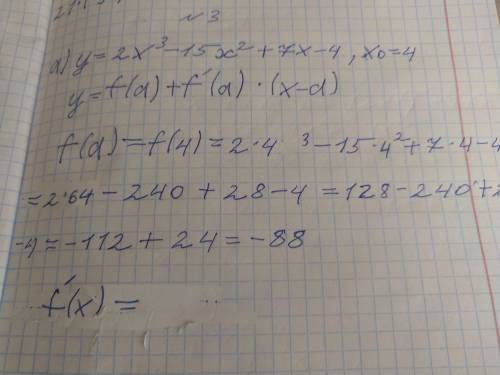 №3
а) y = 2x³ - 15x² + 7x - 4, x0 = 4
y = f(a) + f'(a) · (x - a)
f(a) = f(4) = 2 · 4 ³ - 15 · 4² + 7 · 4 - 4
= 2·64 - 240 + 28 - 4 = 128 - 240 + 2
-4) = -112 + 24 = -88
f'(x) =